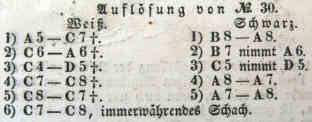 Auflösung von № 30.
Weiß. Schwarz.
1) A 5 — C 7 †. 1) B 8 — A 8.
2) C 6 — A 6 †. 2) B 7 nimmt A 6.
3) C 4 — D 5 †. 3) C 5 nimmt D 5.
4) C 7 — C 8 †. 4) A 8 — A 7.
5) C 8 — C 7 †. 5) A 7 — A 8.
6) C 7 — C 8, immerwährendes Schach.